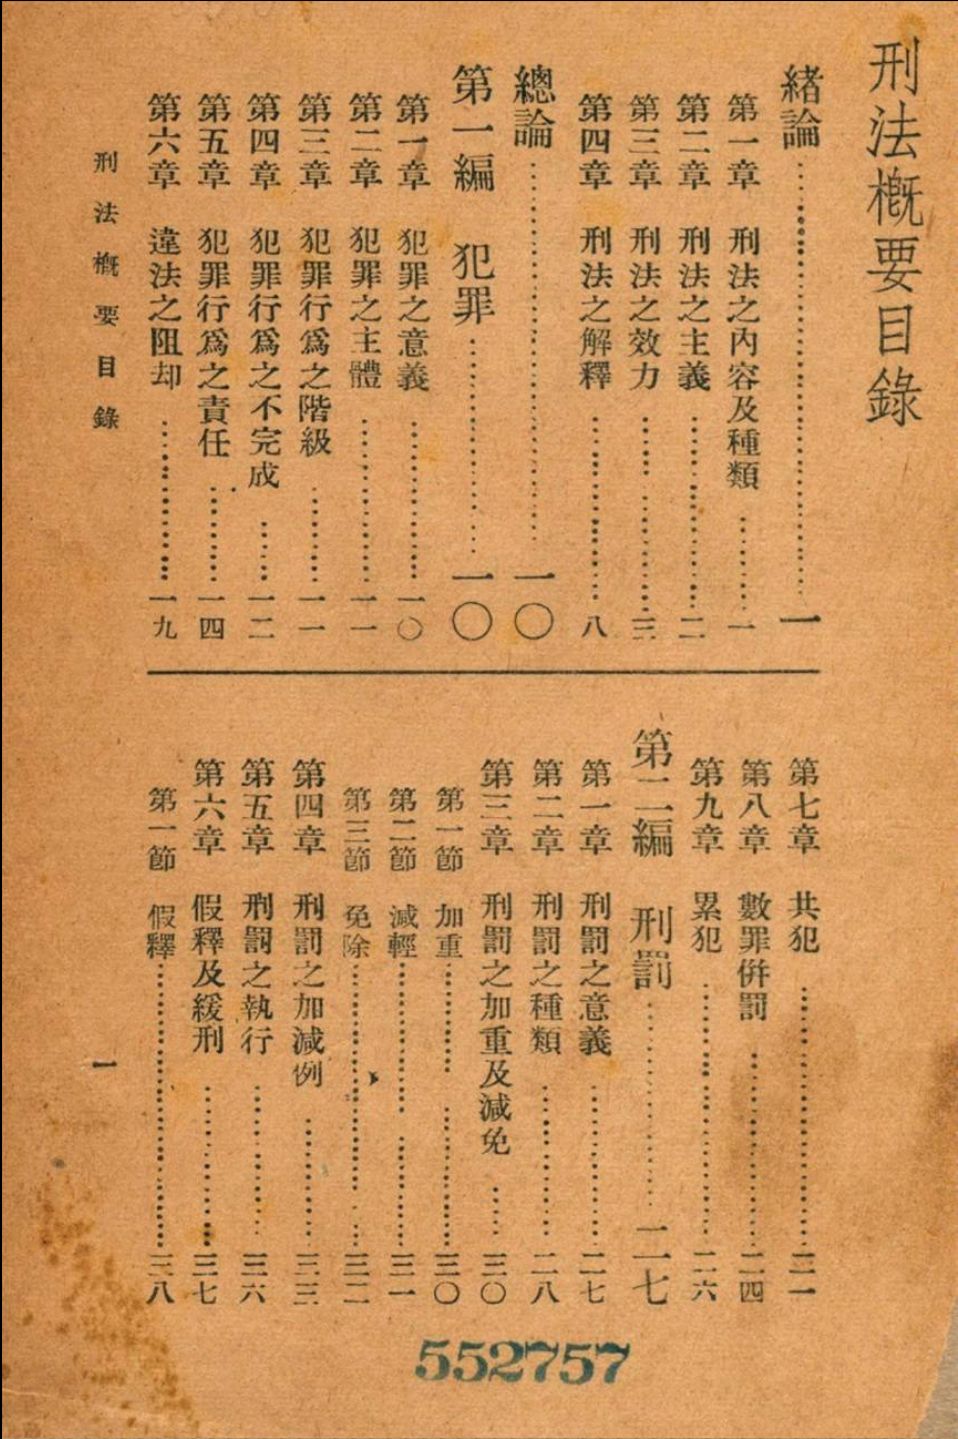 刑法概要目錄
緒論……一
第一章 刑法之內容及種類……一
第二章 刑法之主義……二
第三章 刑法之效力……三
第四章 刑法之解釋……八
總論……一〇
第一編 犯罪……一〇
第一章 犯罪之意義……一〇
第二章 犯罪之主體……一一
第三章 犯罪行爲之階級……一一
第四章 犯罪行爲之不完成……一二
第五章 犯罪行爲之責任……一四
第六章 違法之阻却……一九
第七章 共犯……二一
第八章 數罪併罰……二四
第九章 累犯……二六
第二編 刑罰……二七
第一章 刑罰之意義……二七
第二章 刑罰之種類……二八
第三章 刑罰之加重及減免……三〇
第一節 加重……三〇
第二節 減輕……三一
第三節 免除……三二
第四章 刑罰之加減例……三三
第五章 刑罰之執行……三六
第六章 假釋及緩刑……三七
第一節 假釋……三八
刑法概要目錄 一
552757